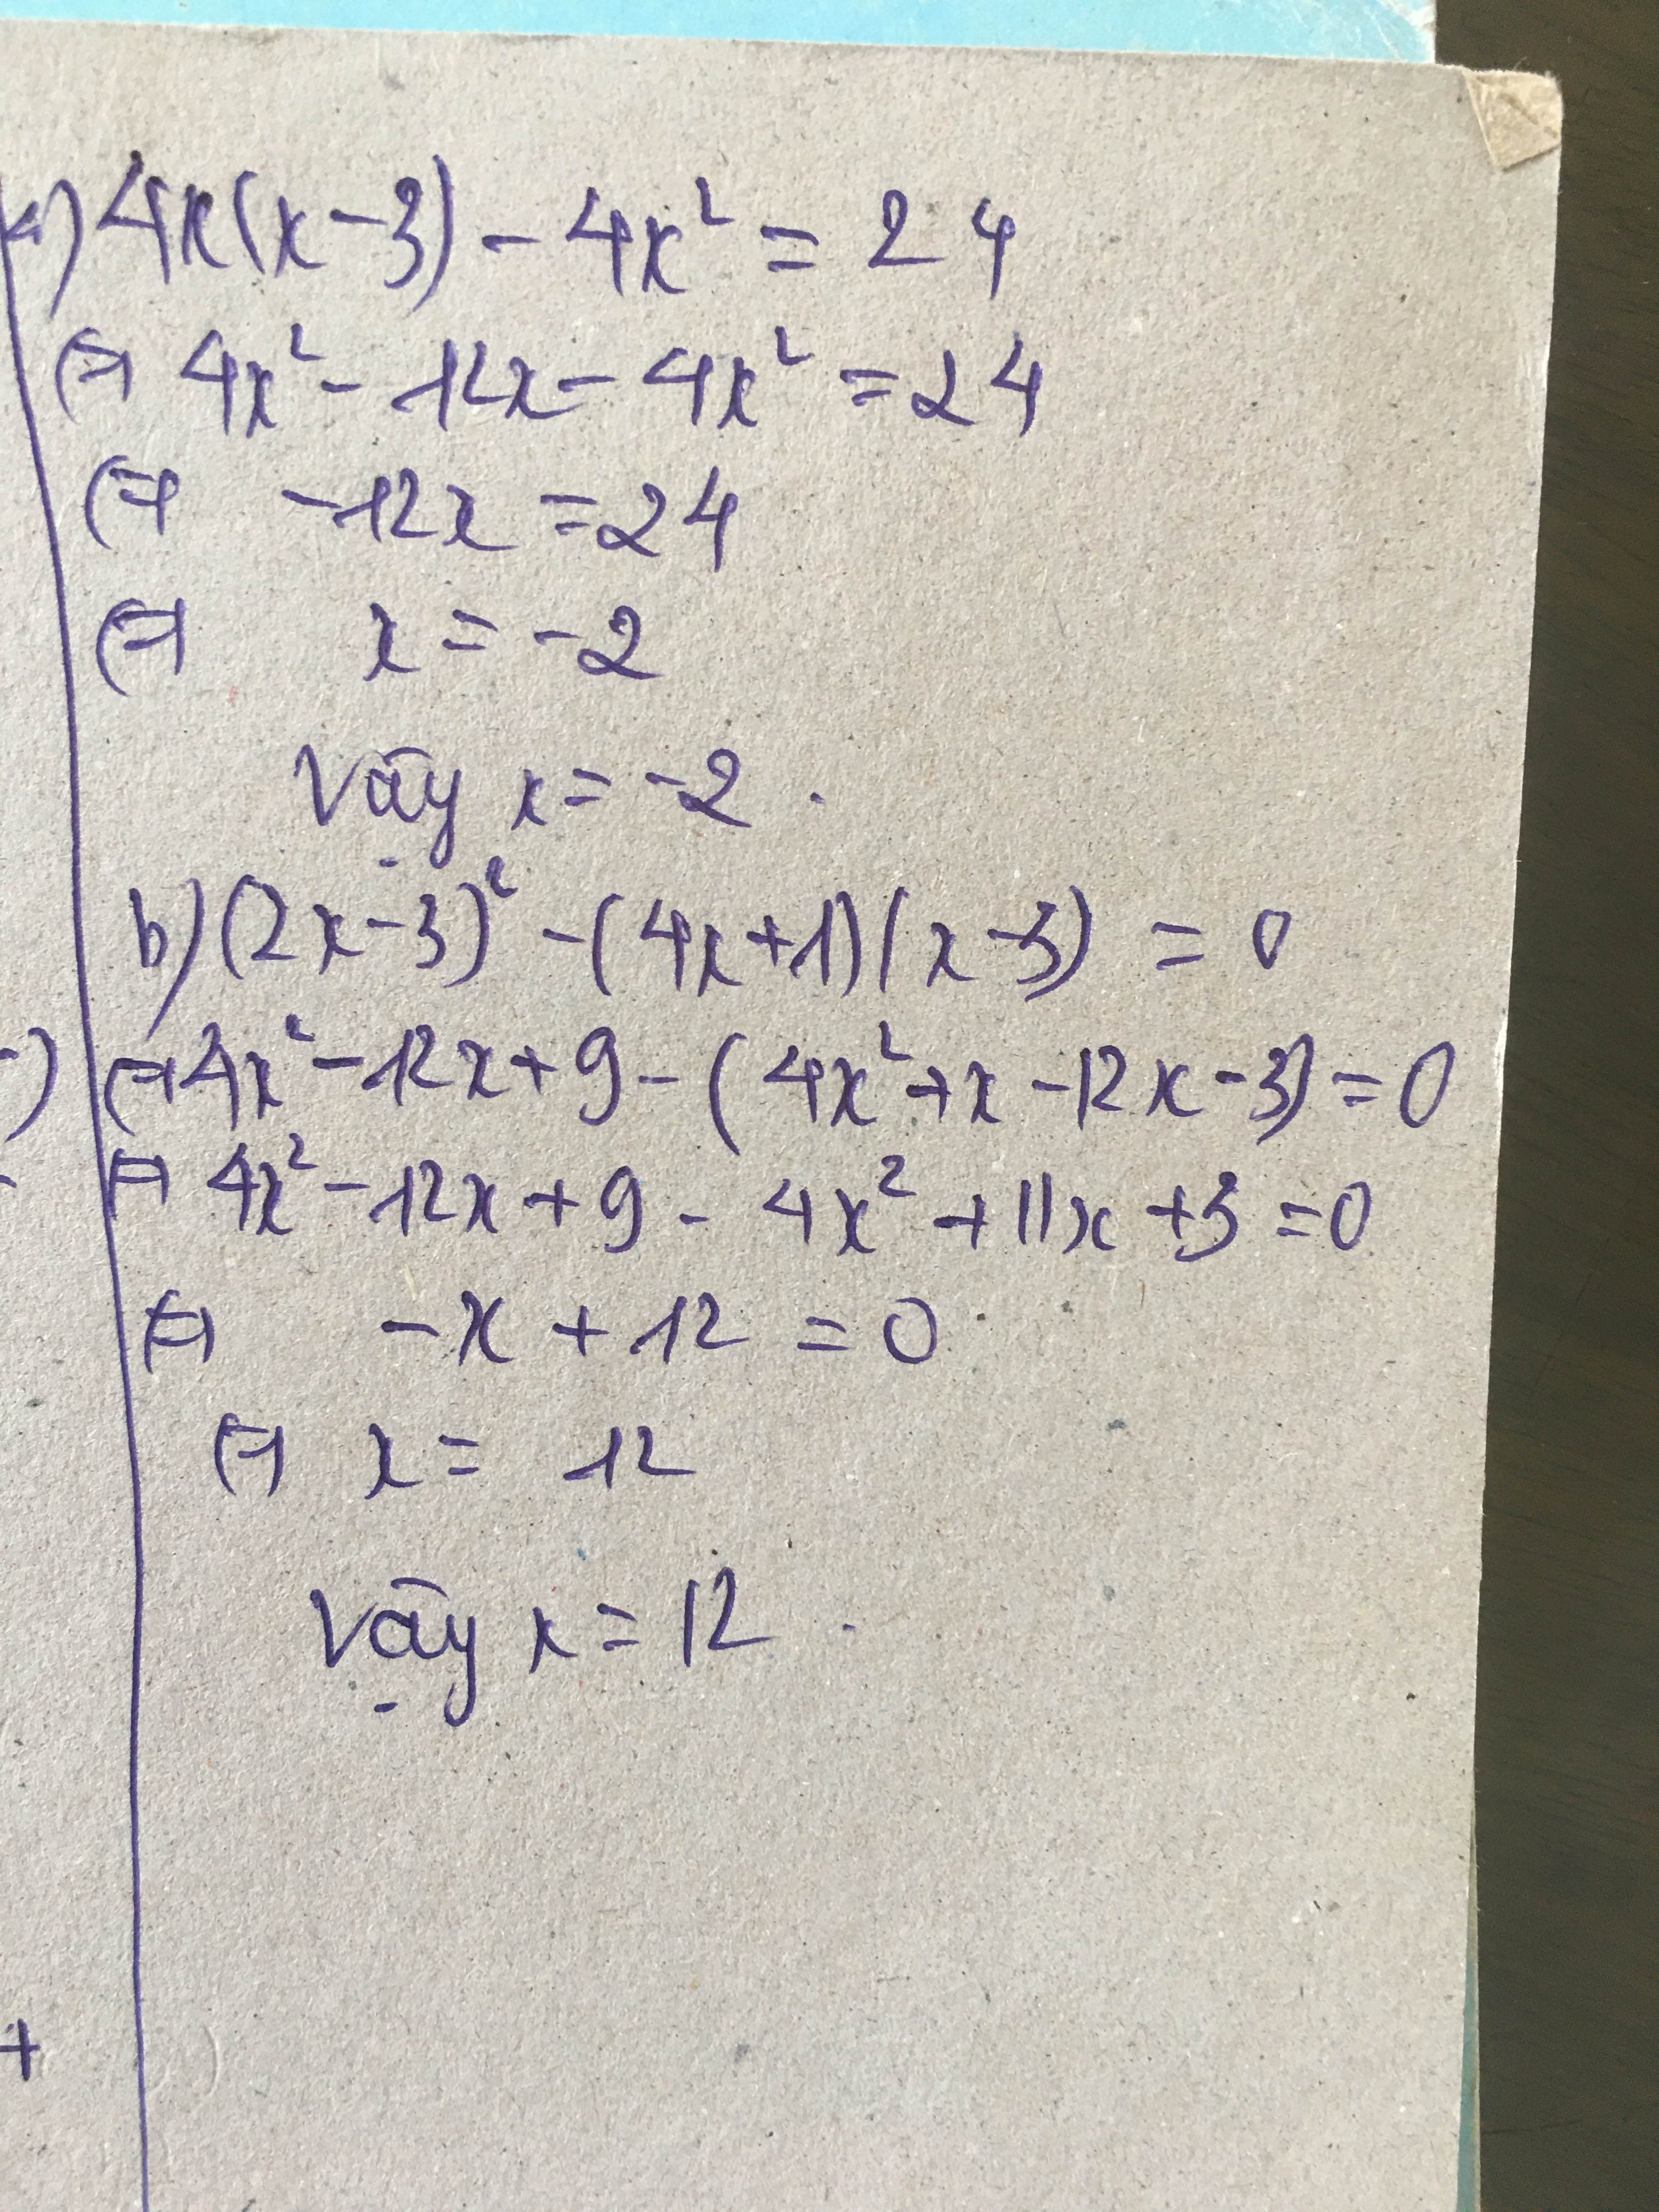 a) 4x(x-3) - 4x² = 24
⇔ 4x² - 12x - 4x² = 24
⇔ -12x = 24
⇔ x = -2
Vậy x = -2.
b) (2x-3)² - (4x+1)(x-3) = 0
⇔ 4x² - 12x + 9 - (4x² + x - 12x - 3) = 0
⇔ 4x² - 12x + 9 - 4x² + 11x + 3 = 0
⇔ -x + 12 = 0
⇔ x = 12
Vậy x = 12.